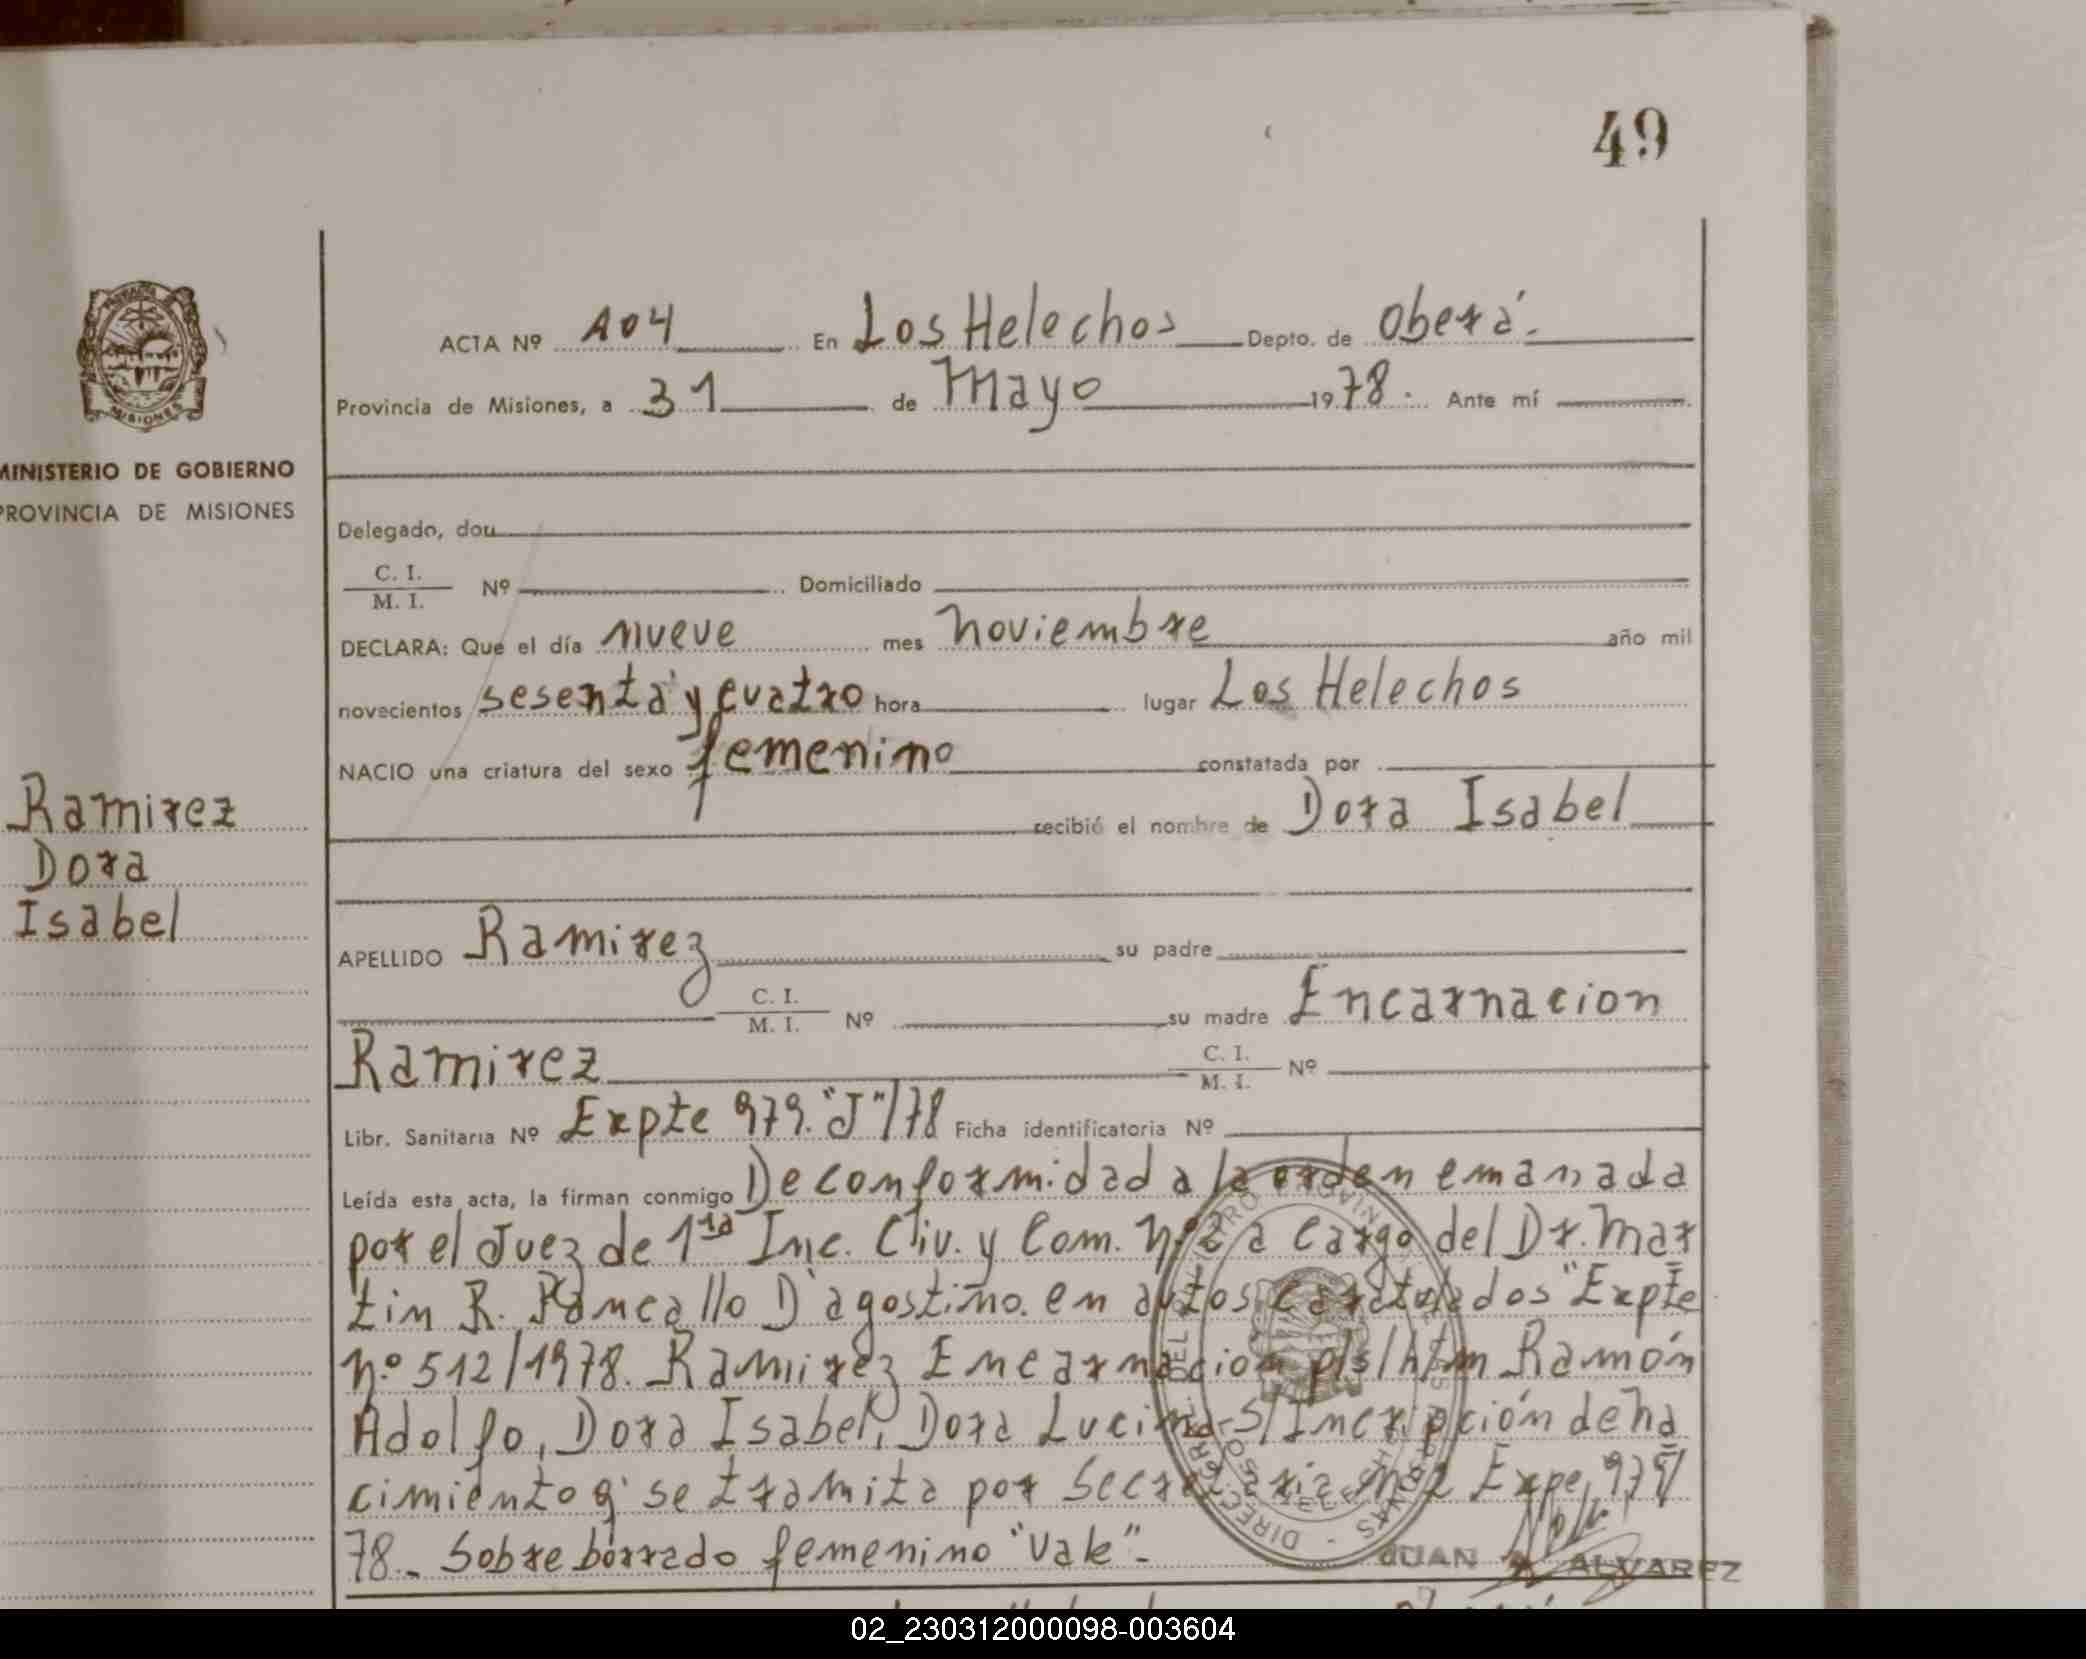 49
ACTA Nº 104 En Los Helechos Depto. de Oberá.
Provincia de Misiones, a 31 de Mayo 1978. Ante mí
MINISTERIO DE GOBIERNO
PROVINCIA DE MISIONES
Delegado, don
C. I.
M. I. Nº Domiciliado
DECLARA: Que el día nueve mes noviembre año mil
novecientos sesenta y cuatro hora lugar Los Helechos
NACIO una criatura del sexo femenino constatada por
recibió el nombre de Dora Isabel
Ramirez
Dora
Isabel
APELLIDO Ramirez su padre
C. I.
M. I. Nº su madre Encarnacion
Ramirez C. I.
M. I. Nº
Libr. Sanitaria Nº Expte 979."J"/78 Ficha identificatoria Nº
Leída esta acta, la firman conmigo De conformidad a la orden emanada
por el Juez de 1ra Inc. Civ. y Com. Nº 2 a cargo del Dr. Mar
tin R. D'agostino. en autos caratulados "Expte
nº 512/1978. Ramirez Encarnación p/s/h/m Ramón
Adolfo, Dora Isabel, Dora Lucina-S/Incripción de na
cimiento q' se tramita por Secretaria nº 2 Expe, 979/
78._ Sobre borrado femenino "Vale"._
JUAN ALVAREZ
MISIONES
02_230312000098-003604